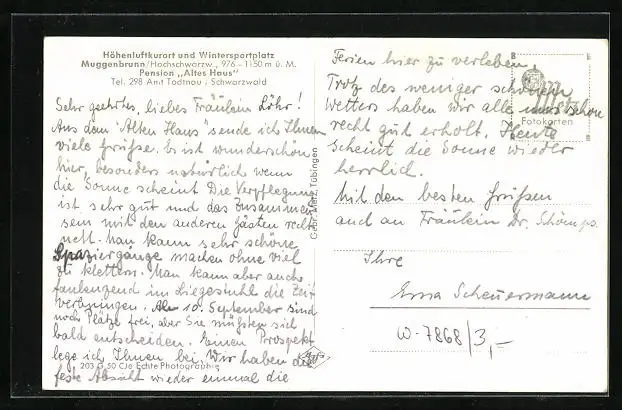 Höhenluftkurort und Wintersportplatz
Muggenbrunn/Hochschwarzw., 976–1150 m ü. M.
Pension „Altes Haus"
Tel. 298 Amt Todtnau i Schwarzwald
Sehr geehrtes, liebes Fräulein Löhr!
Aus dem "Alten Haus" sende ich Ihnen
viele Grüsse. Es ist wunderschön
hier, besonders natürlich wenn
die Sonne scheint. Die Verpflegung
ist sehr gut und das Zusammen-
sein mit den anderen Gästen recht
nett. Man kann sehr schöne
Spaziergänge machen ohne viel
zu klettern. Man kann aber auch
faulenzend im Liegestuhle die Zeit
verbringen. Ab 10. September sind
noch Plätze frei, aber Sie müssten sich
bald entscheiden. Einen Prospekt
lege ich Ihnen bei. Wir haben die
feste Absicht wieder einmal die
203 G 50 C/o Echte Photographie
Gebr. Metz, Tübingen
Ferien hier zu verleben.
Trotz des weniger schönen
Wetters haben wir alle uns schon
recht gut erholt. Heute
scheint die Sonne wieder
herrlich.
Mit den besten Grüßen
auch an Fräulein Dr.
Ihre
Erna Scheuermann
Metz
Fotokarten
W-7868/3,-